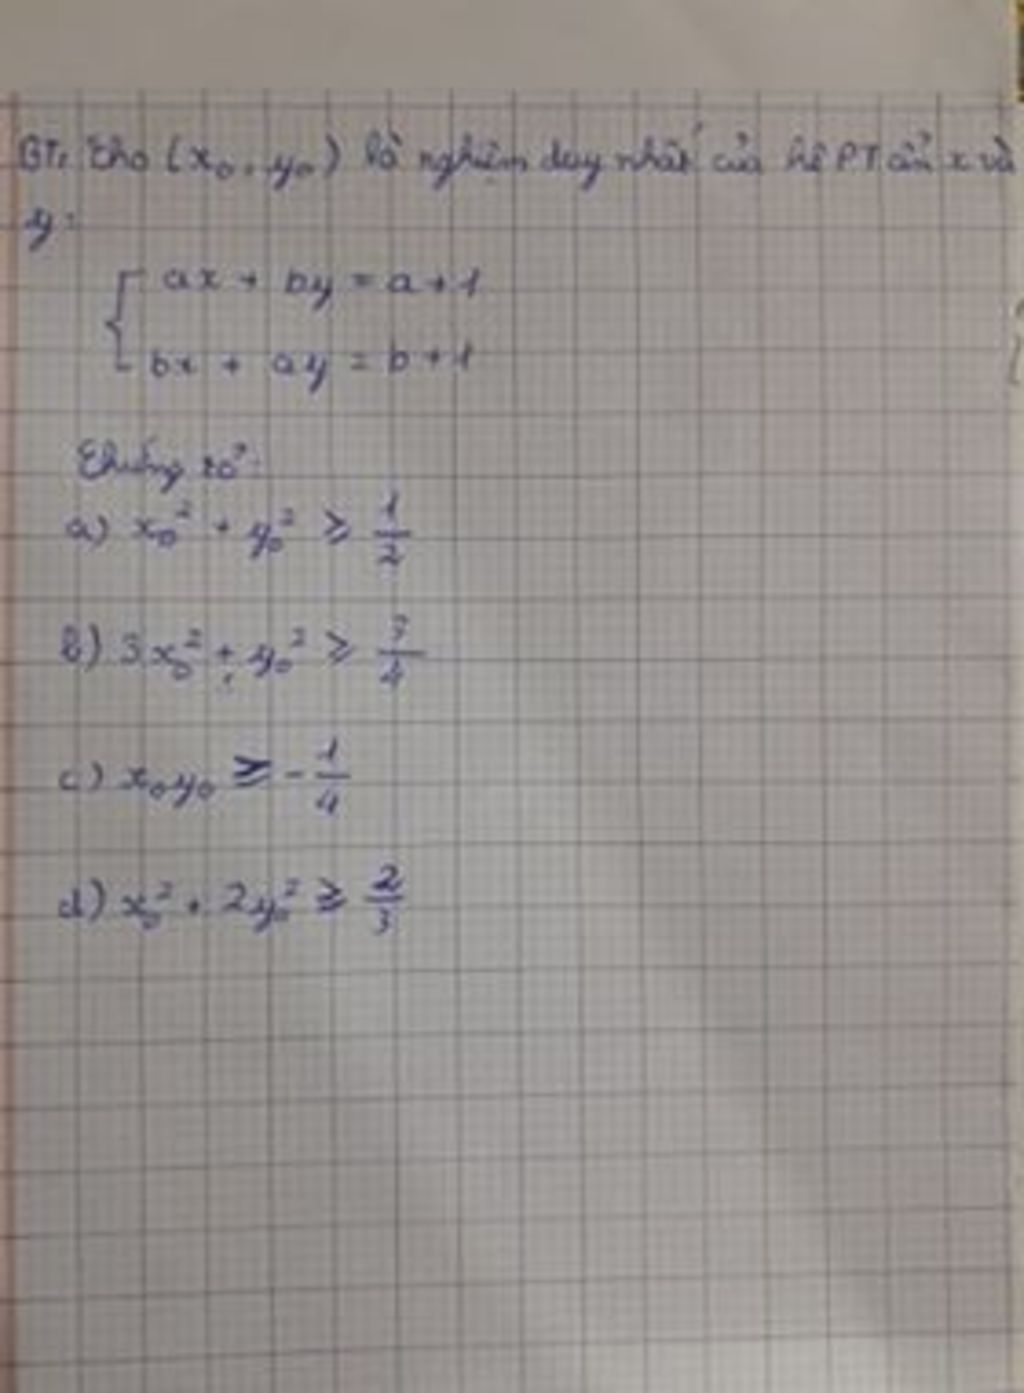 BT: Cho (x₀, y₀) là nghiệm duy nhất của hệ PT ẩn x và
y:
ax + by = a + 1
bx + ay = b + 1
Chứng tỏ:
a) x₀² + y₀² ≥ 1/2
b) 3x₀² + y₀² ≥ 3/4
c) x₀y₀ ≥ - 1/4
d) x₀² + 2y₀² ≥ 2/3